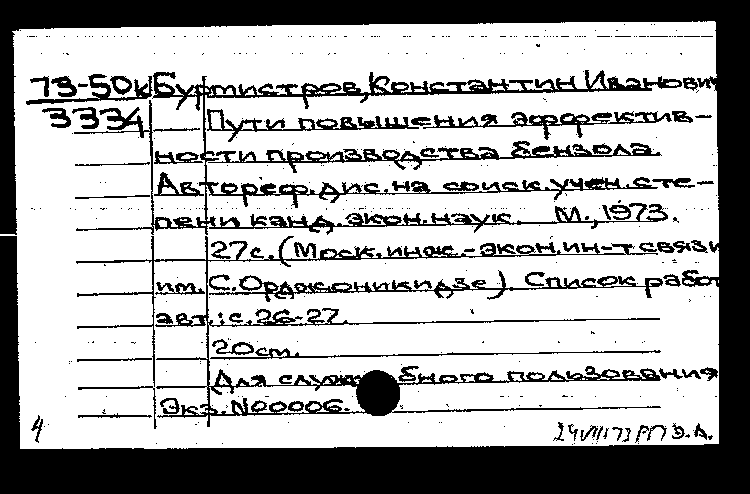 73-50к Бурмистров, Константин Иванович
3334 Пути повышения эффектив-
ности производства бензола.
Автореф. дис. на соиск. учен. сте-
пени канд. экон. наук. М., 1973.
27с. (Моск. инж.-экон. ин-т связи
им. С. Орджоникидзе). Список работ
авт.: с. 26-27.
20см.
Для служебного пользования
Экз. №00006.
4 24 VIII 73 РП Э.А.